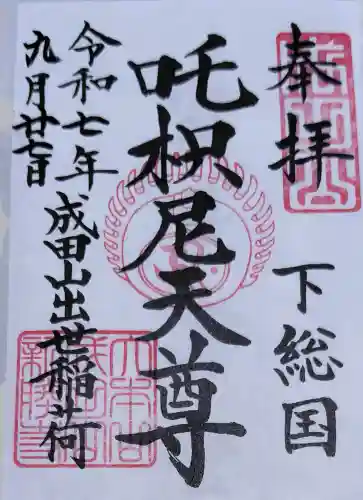 奉拝
下総国
吒枳尼天尊
令和七年
九月廿七日
成田山出世稲荷